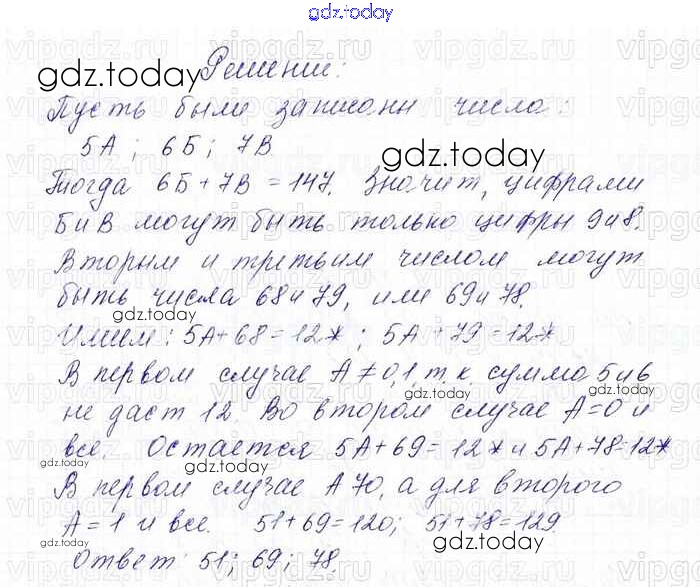 gdz.today
gdz.today Решение:
Пусть были записаны числа:
5А ; 6Б ; 7В
gdz.today
Тогда 6Б + 7В = 147. Значит, цифрами
Б и В могут быть только цифры 9 и 8.
Вторым и третьим числом могут
быть числа 68 и 79, или 69 и 78.
gdz.today
Имеем: 5А + 68 = 12* ; 5А + 79 = 12*
В первом случае А ≠ 0,1, т.к. сумма 5 и 6
gdz.today
не даст 12. Во втором случае А = 0 и
все. Остается 5А + 69 = 12* и 5А + 78 = 12*
gdz.today
gdz.today
В первом случае А > 0, а для второго
А = 1 и все. 51 + 69 = 120; 51 + 78 = 129.
gdz.today
Ответ: 51; 69; 78.
gdz.today
vipgdz.ru